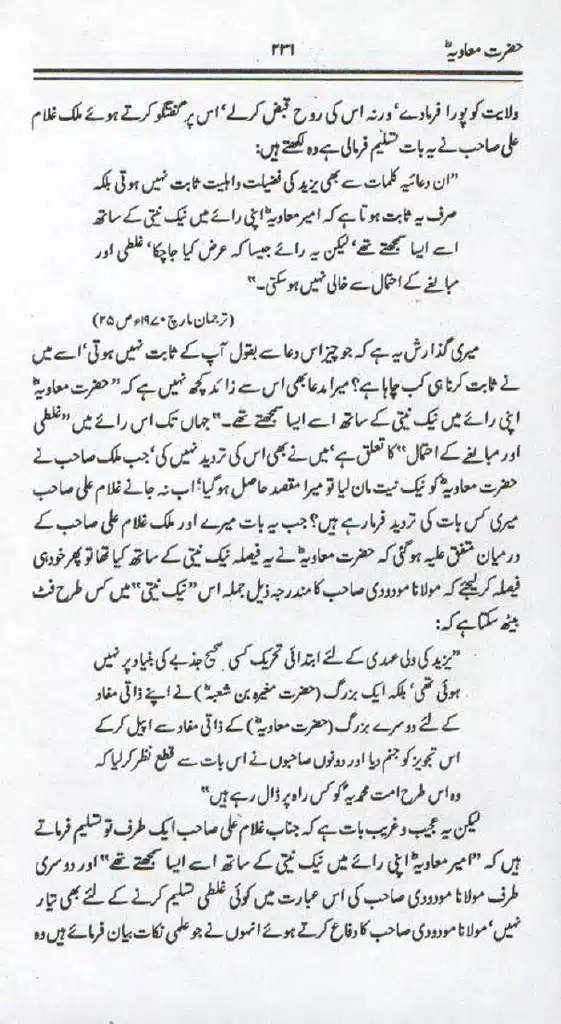 حضرت معاویہؓ ۲۳۱
ولایت کو پورا فرمادے‘ ورنہ اس کی روح قبض کرلے‘ اس پر گفتگو کرتے ہوئے ملک غلام
علی صاحب نے یہ بات تسلیم فرمالی ہے وہ لکھتے ہیں:
”ان دعائیہ کلمات سے بھی یزید کی فضیلت و اہلیت ثابت نہیں ہوتی بلکہ
صرف یہ ثابت ہوتا ہے کہ امیر معاویہؓ اپنی رائے میں نیک نیتی کے ساتھ
اسے ایسا سمجھتے تھے‘ لیکن یہ رائے جیسا کہ عرض کیا جاچکا‘ غلطی اور
مبالغے کے احتمال سے خالی نہیں ہوسکتی۔“
(ترجمان مارچ ۱۹۷۰ء ص ۲۵)
میری گذارش یہ ہے کہ جو چیز اس دعا سے بقول آپ کے ثابت نہیں ہوتی‘ اسے میں
نے ثابت کرنا ہی کب چاہا ہے؟ میرا مدعا بھی اس سے زائد کچھ نہیں ہے کہ ”حضرت معاویہؓ
اپنی رائے میں نیک نیتی کے ساتھ اسے ایسا سمجھتے تھے۔“ جہاں تک اس رائے میں ”غلطی
اور مبالغے کے احتمال“ کا تعلق ہے‘ میں نے بھی اس کی تردید نہیں کی‘ جب ملک صاحب نے
حضرت معاویہؓ کو نیک نیت مان لیا تو میرا مقصد حاصل ہوگیا‘ اب نہ جانے غلام علی صاحب
میری کس بات کی تردید فرمارہے ہیں؟ جب یہ بات میرے اور ملک غلام علی صاحب کے
درمیان متفق علیہ ہوگئی کہ حضرت معاویہؓ نے یہ فیصلہ نیک نیتی کے ساتھ کیا تھا تو پھر خود ہی
فیصلہ کرلیجئے کہ مولانا مودودی صاحب کا مندرجہ ذیل جملہ اس ”نیک نیتی“ میں کس طرح فٹ
بیٹھ سکتا ہے کہ:
”یزید کی ولی عہدی کے لئے ابتدائی تحریک کسی صحیح جذبے کی بنیاد پر نہیں
ہوئی تھی‘ بلکہ ایک بزرگ (حضرت مغیرہ بن شعبہؓ) نے اپنے ذاتی مفاد
کے لئے دوسرے بزرگ (حضرت معاویہؓ) کے ذاتی مفاد سے اپیل کرکے
اس تجویز کو جنم دیا اور دونوں صاحبوں نے اس بات سے قطع نظر کرلیا کہ
وہ اس طرح امت محمدیہؐ کو کس راہ پر ڈال رہے ہیں“
لیکن یہ عجیب و غریب بات ہے کہ جناب غلام علی صاحب ایک طرف تو تسلیم فرماتے
ہیں کہ ”امیر معاویہؓ اپنی رائے میں نیک نیتی کے ساتھ اسے ایسا سمجھتے تھے“ اور دوسری
طرف مولانا مودودی صاحب کی اس عبارت میں کوئی غلطی تسلیم کرنے کے لئے بھی تیار
نہیں‘ مولانا مودودی صاحب کا دفاع کرتے ہوئے انہوں نے جو علمی نکات بیان فرمائے ہیں وہ